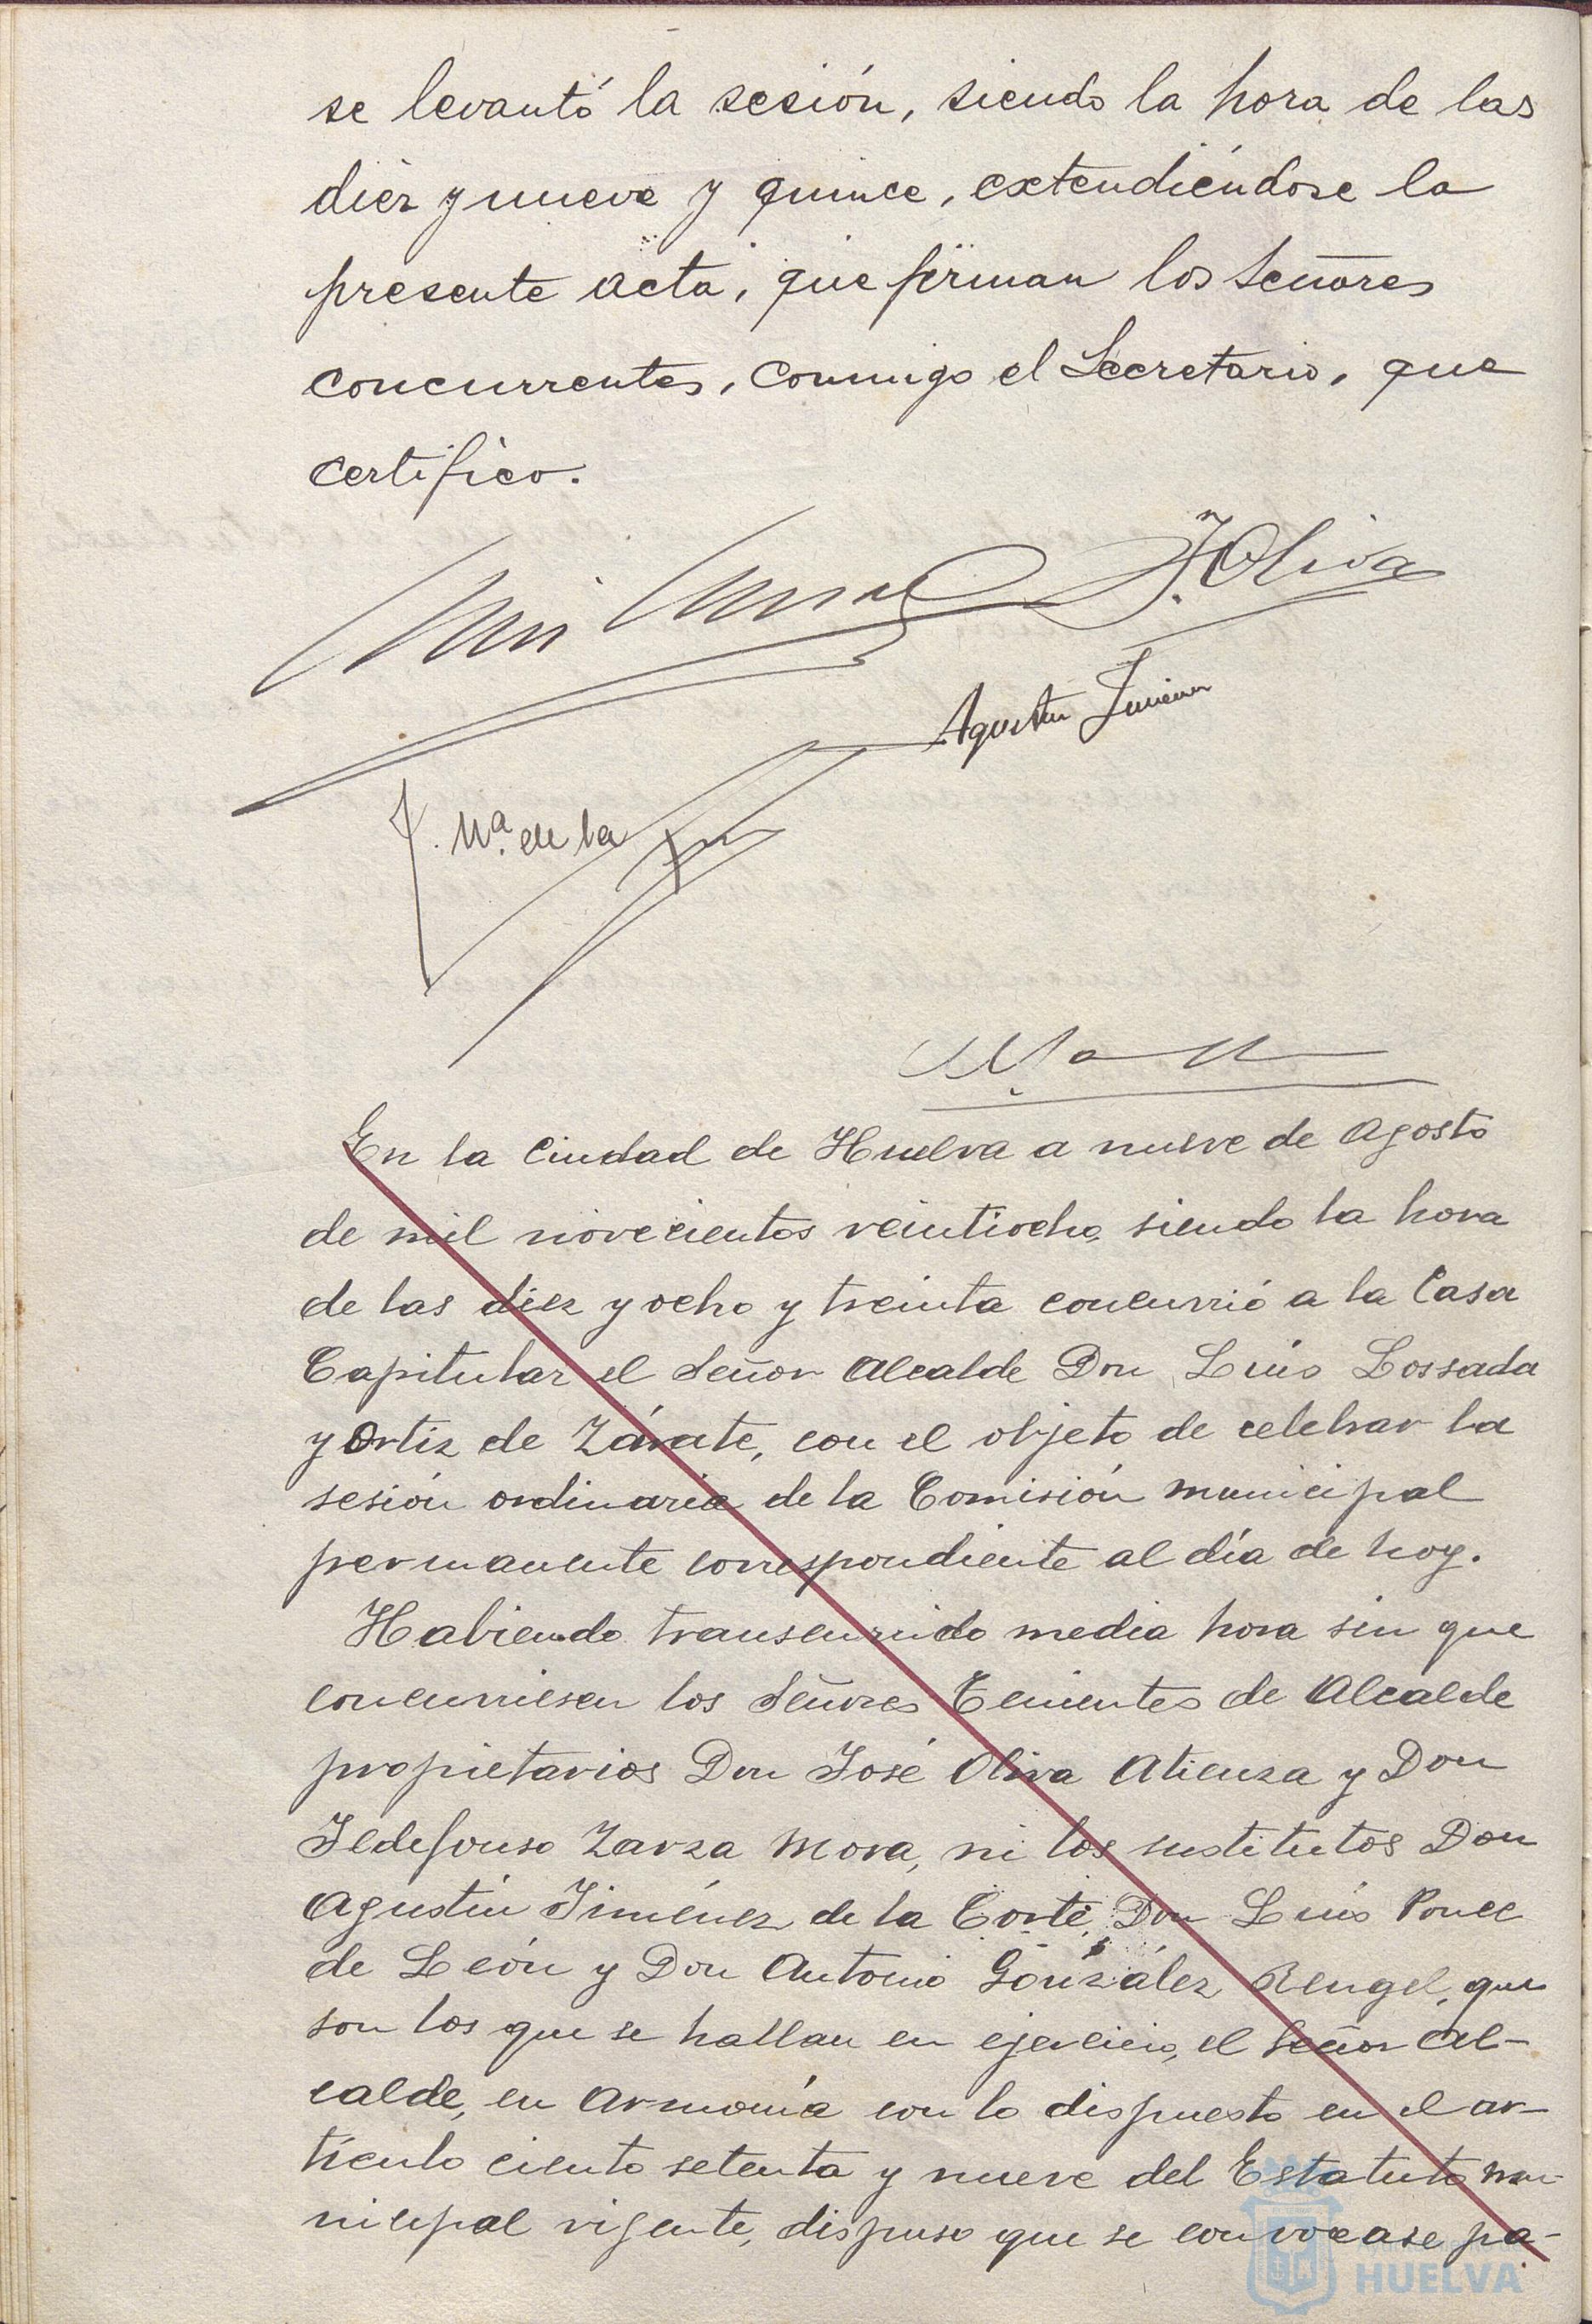 se levantó la sesión, siendo la hora de las
diez y nueve y quince, extendiéndose la
presente acta, que firman los Señores
concurrentes, conmigo el Secretario, que
certifico.
J. Oliva
Agustín Jiménez
J. Mª. de la
En la Ciudad de Huelva a nueve de Agosto
de mil novecientos veintiocho, siendo la hora
de las diez y ocho y treinta concurrió a la Casa
Capitular el Señor Alcalde Don Luis Lossada
y Ortiz de Zárate, con el objeto de celebrar la
sesión ordinaria de la Comisión municipal
permanente correspondiente al día de hoy.
Habiendo transcurrido media hora sin que
concurriesen los Señores Tenientes de Alcalde
propietarios Don José Oliva Atienza y Don
Ildefonso Zarza Mora, ni los sustitutos Don
Agustín Jiménez de la Corte, Don Luis Ponce
de León y Don Antonio González Rengel, que
son los que se hallan en ejercicio, el Señor Al-
calde, en armonía con lo dispuesto en el ar-
tículo ciento setenta y nueve del Estatuto mu-
nicipal vigente, dispuso que se convocase pa-
HUELVA